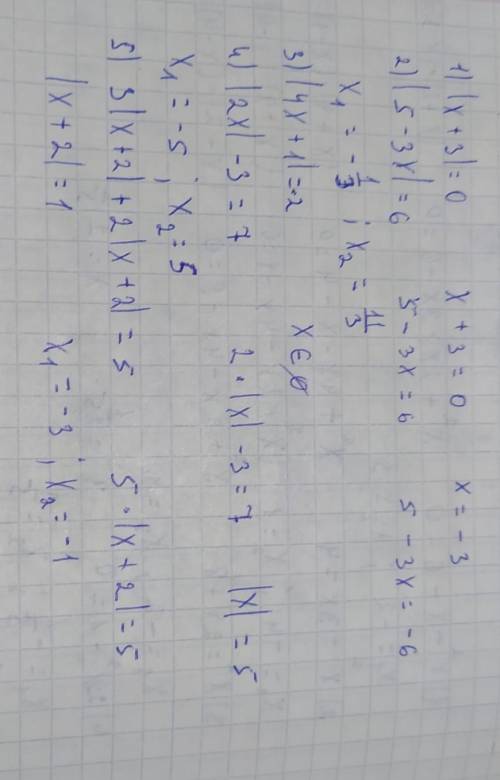 1) |x+3|=0 x+3=0 x=-3
2) |5-3x|=6 5-3x=6 5-3x=-6
x₁ = -1/3 ; x₂ = 11/3
3) |4x+1|=-2 x∈∅
4) |2x|-3=7 2·|x|-3=7 |x|=5
x₁ = -5 ; x₂ = 5
5) 3|x+2|+2|x+2|=5 5·|x+2|=5
|x+2|=1 x₁ = -3 ; x₂ = -1